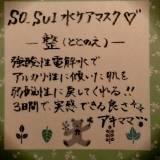 SO.SUI 水ケアマスク♡
― 整(ととのえ) ―
強酸性電解水で
アルカリ性に傾いた肌を
弱酸性に戻してくれる!!
3日間で、実感できる良さ☆
アキママ